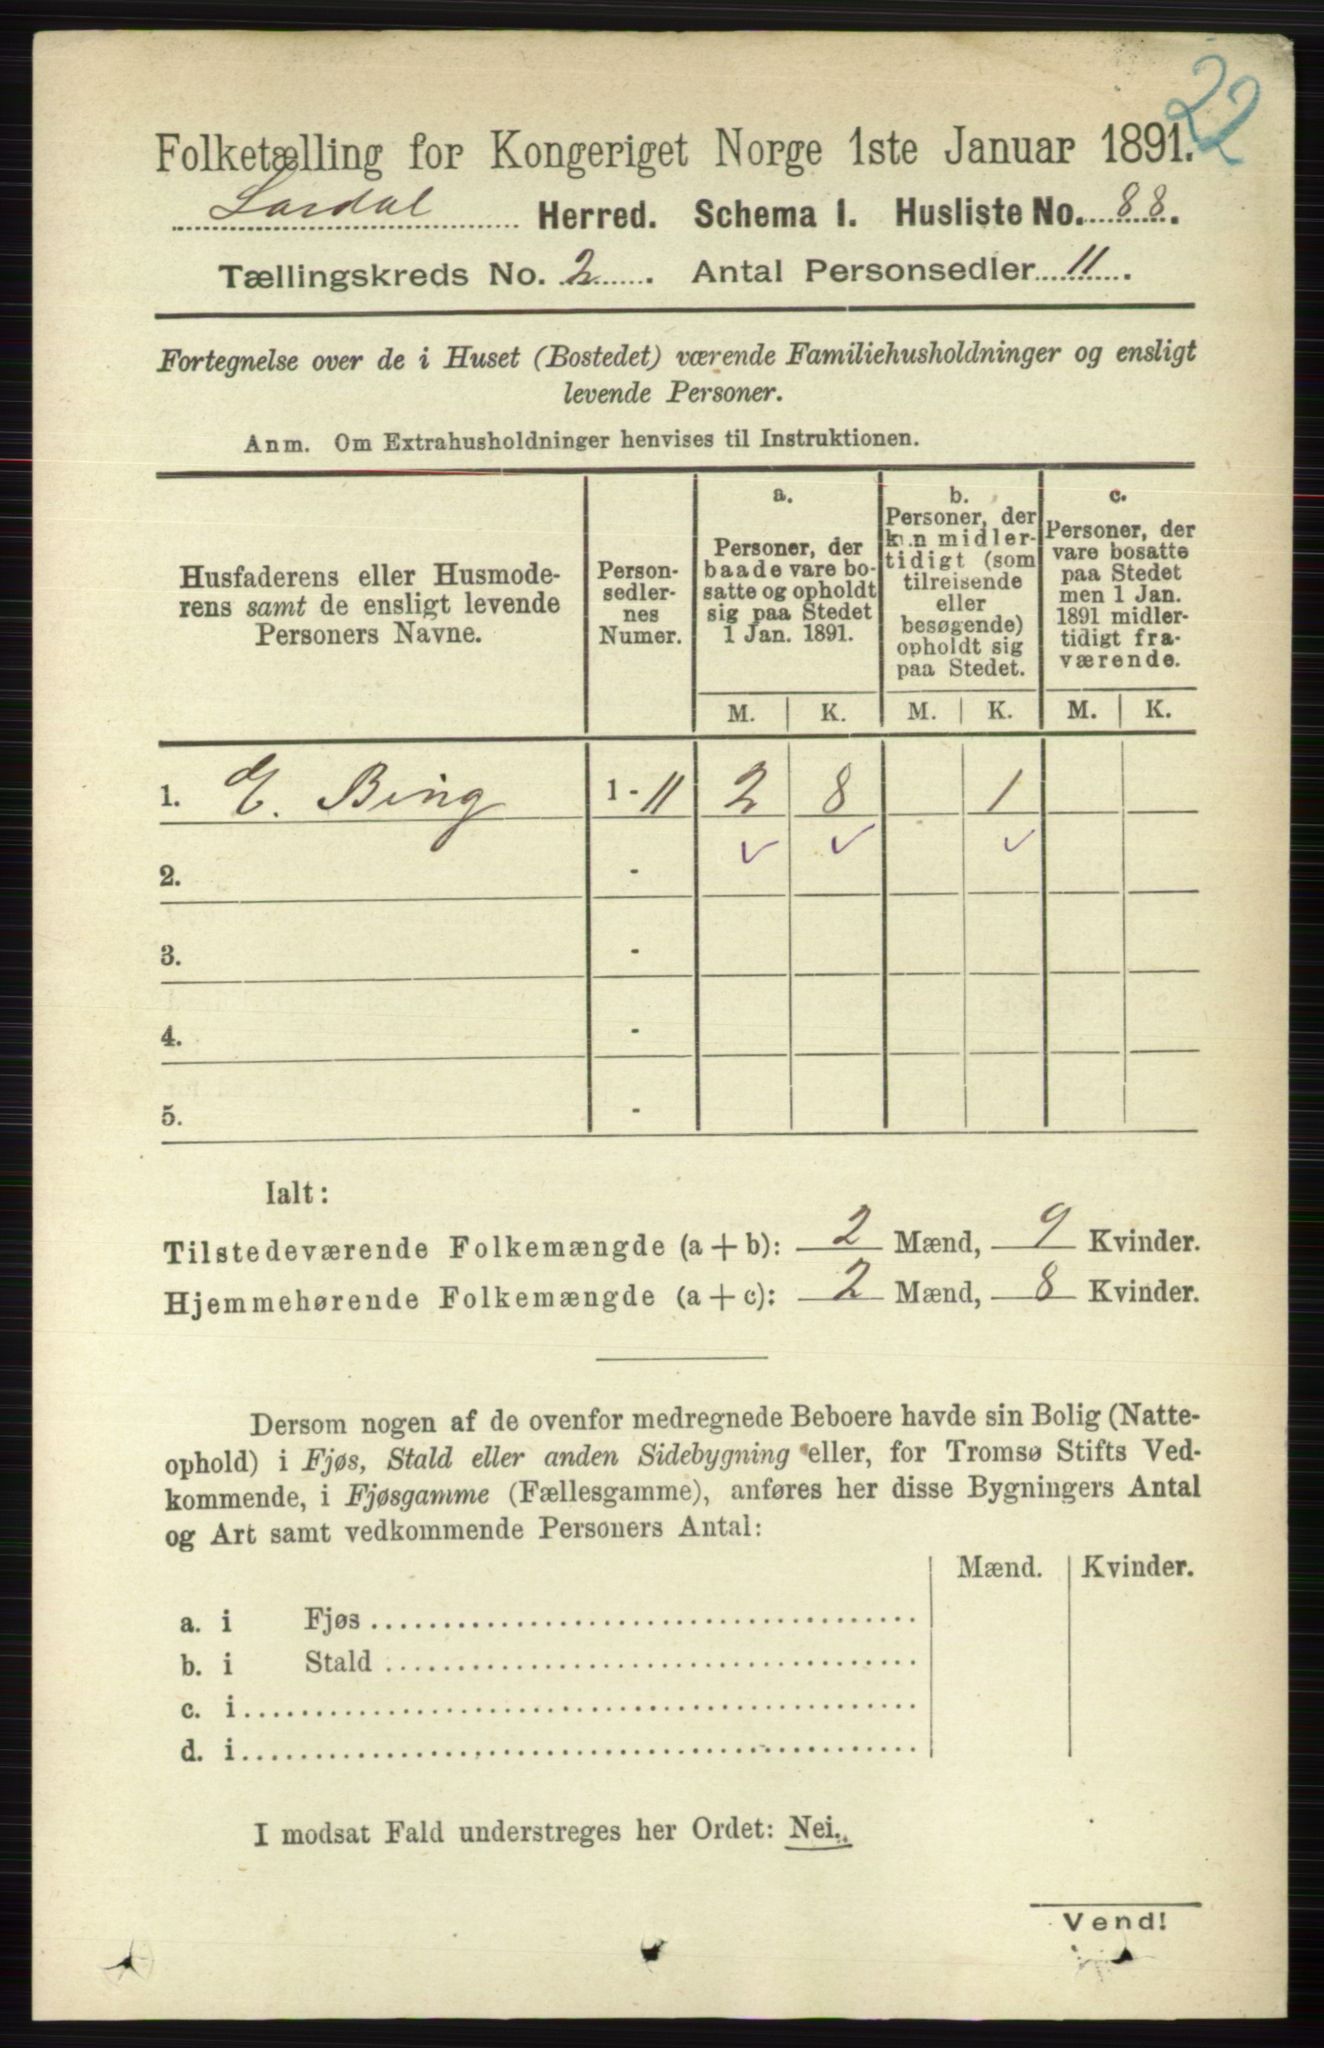 22
Folketælling for Kongeriget Norge 1ste Januar 1891.
Lardal Herred. Schema I. Husliste No. 88.
Tællingskreds No. 2. Antal Personsedler 11.
Fortegnelse over de i Huset (Bostedet) værende Familiehusholdninger og ensligt
levende Personer.
Anm. Om Extrahusholdninger henvises til Instruktionen.
Husfaderens eller Husmode-
rens samt de ensligt levende
Personers Navne.
Person-
sedler-
nes
Numer.
a.
Personer, der
baade vare bo-
satte og opholdt
sig paa Stedet
1 Jan. 1891.
b.
Personer, der
kun midler-
tidigt (som
tilreisende
eller
besøgende)
opholdt sig
paa Stedet.
c.
Personer, der
vare bosatte
paa Stedet
men 1 Jan.
1891 midler-
tidigt fra-
værende.
M. K. M. K. M. K.
1. E. Bing 1 - 11 2 8 1
2. -
3. -
4. -
5. -
Ialt:
Tilstedeværende Folkemængde (a + b): 2 Mænd, 9 Kvinder.
Hjemmehørende Folkemængde (a + c): 2 Mænd, 8 Kvinder.
Dersom nogen af de ovenfor medregnede Beboere havde sin Bolig (Natte-
ophold) i Fjøs, Stald eller anden Sidebygning eller, for Tromsø Stifts Ved-
kommende, i Fjøsgamme (Fællesgamme), anføres her disse Bygningers Antal
og Art samt vedkommende Personers Antal:
Mænd. Kvinder.
a. i Fjøs
b. i Stald
c. i
d. i
I modsat Fald understreges her Ordet: Nei.
Vend!